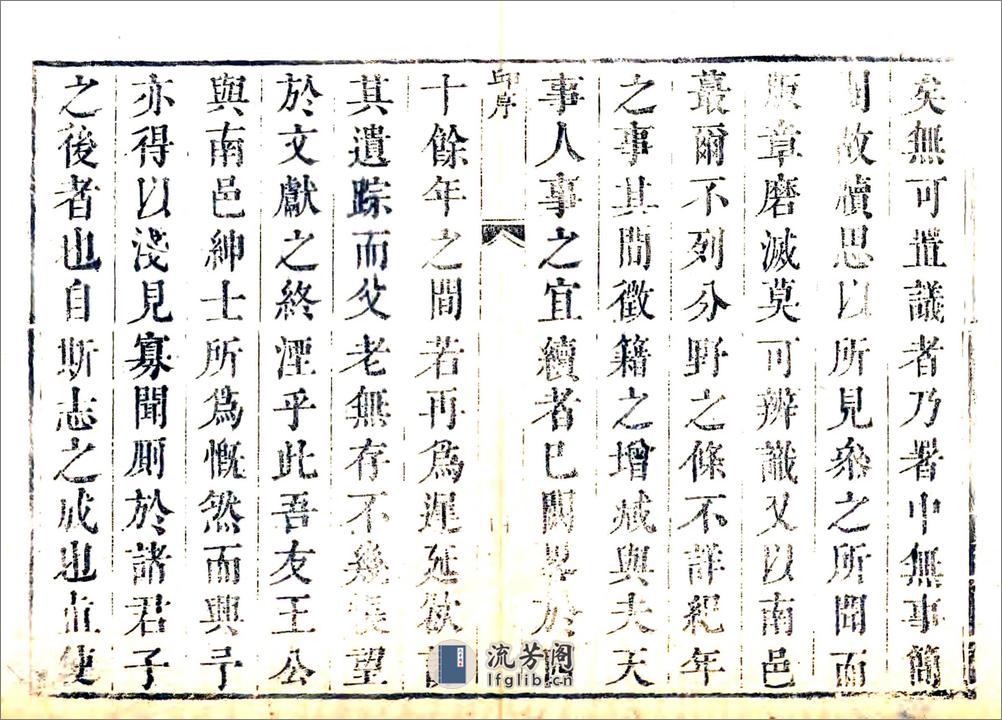 矣無可置議者乃署中無事簡
閱故牘思以所見參之所聞而
版章磨滅莫可辨識又以南邑
蕞爾不列分野之條不詳紀年
之事其間徵籍之增減與夫天
事人事之宜續者已闕畧於
邱序
十餘年之間若再爲遲延欲
其遺踪而父老無存不幾長望
於文獻之終湮乎此吾友王公
與南邑紳士所爲慨然而興予
亦得以淺見寡聞厠於諸君子
之後者也自斯志之成也豈使
流芳阁
lfglib.cn